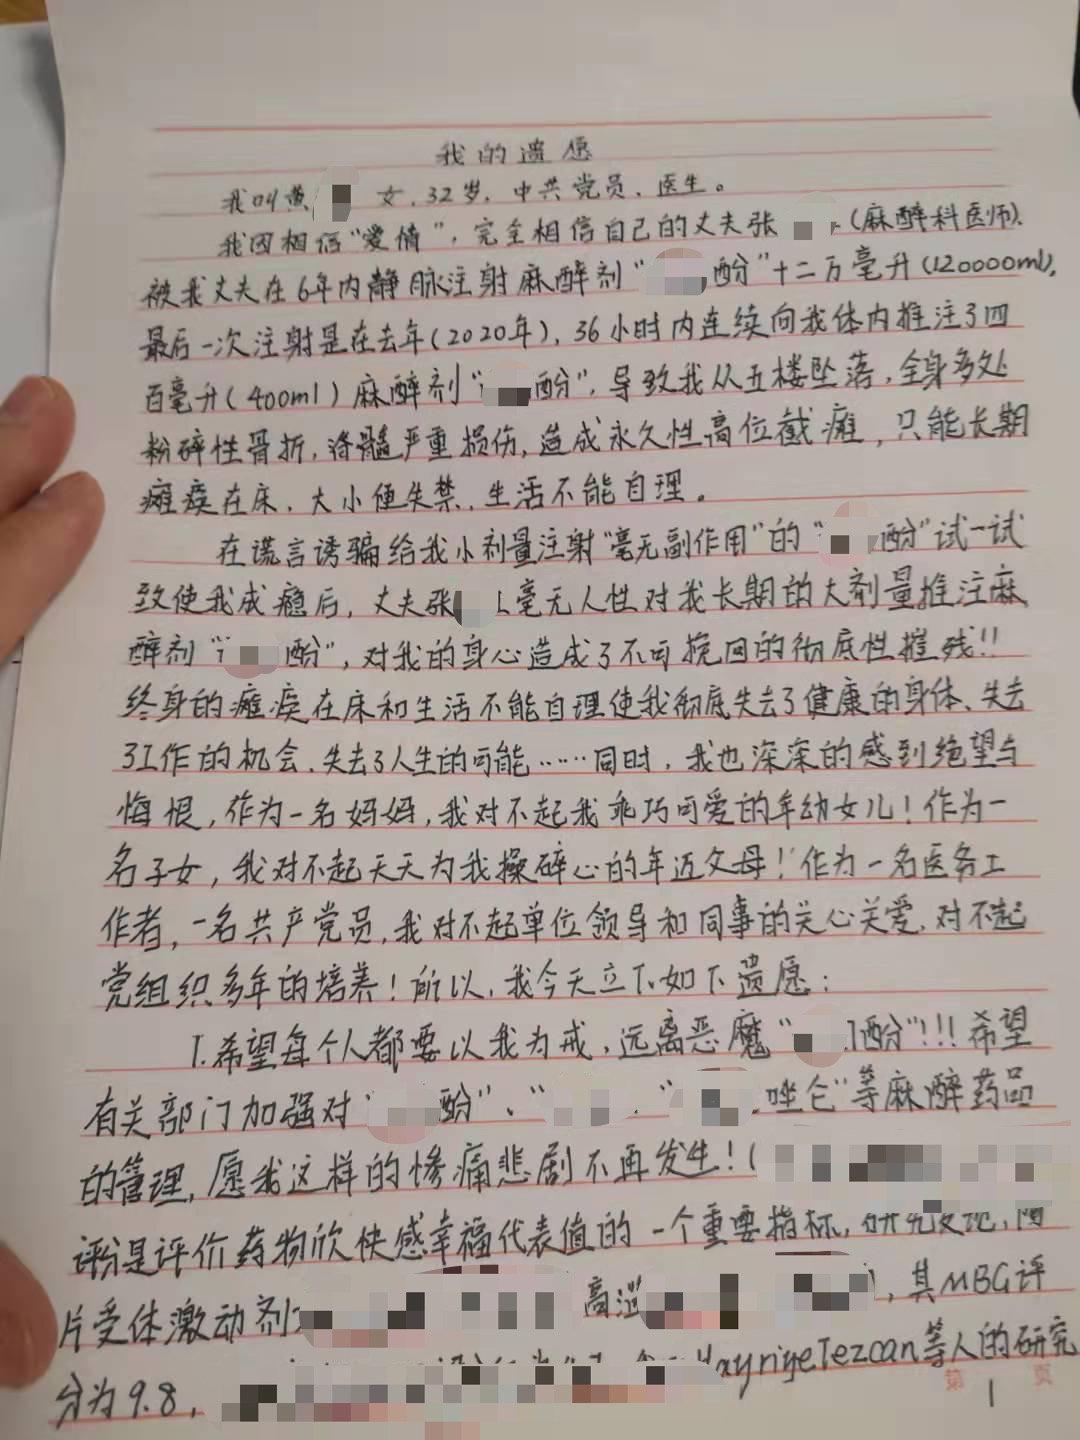 我的遗愿
我叫黄 女，32岁，中共党员、医生。
我因相信“爱情”，完全相信自己的丈夫张 （麻醉科医师），
被我丈夫在6年内静脉注射麻醉剂“ 酚”十二万毫升（120000ml），
最后一次注射是在去年（2020年），36小时内连续向我体内推注了四
百毫升（400ml）麻醉剂“ 酚”，导致我从五楼坠落，全身多处
粉碎性骨折，脊髓严重损伤，造成永久性高位截瘫，只能长期
瘫痪在床、大小便失禁、生活不能自理。
在谎言诱骗给我小剂量注射“毫无副作用”的“ 酚”试一试
致使我成瘾后，丈夫张 毫无人性对我长期的大剂量推注麻
醉剂“ 酚”，对我的身心造成了不可挽回的彻底性摧残！！
终身的瘫痪在床和生活不能自理使我彻底失去了健康的身体、失去
了工作的机会、失去了人生的可能……同时，我也深深的感到绝望与
悔恨，作为一名妈妈，我对不起我乖巧可爱的年幼女儿！作为一
名子女，我对不起天天为我操碎心的年迈父母！作为一名医务工
作者，一名共产党员，我对不起单位领导和同事的关心关爱，对不起
党组织多年的培养！所以，我今天立下如下遗愿：
1.希望每个人都要以我为戒，远离恶魔“ 酚”！！！希望
有关部门加强对“ 酚”、“ “ 唑仑”等麻醉药品
的管理，愿我这样的惨痛悲剧不再发生！（
评分是评价药物欣快感幸福代表值的一个重要指标，研究发现，阿
片受体激动剂 高 ，其MBG评
分为9.8， Hayriye Tezcan等人的研究
第 1 页